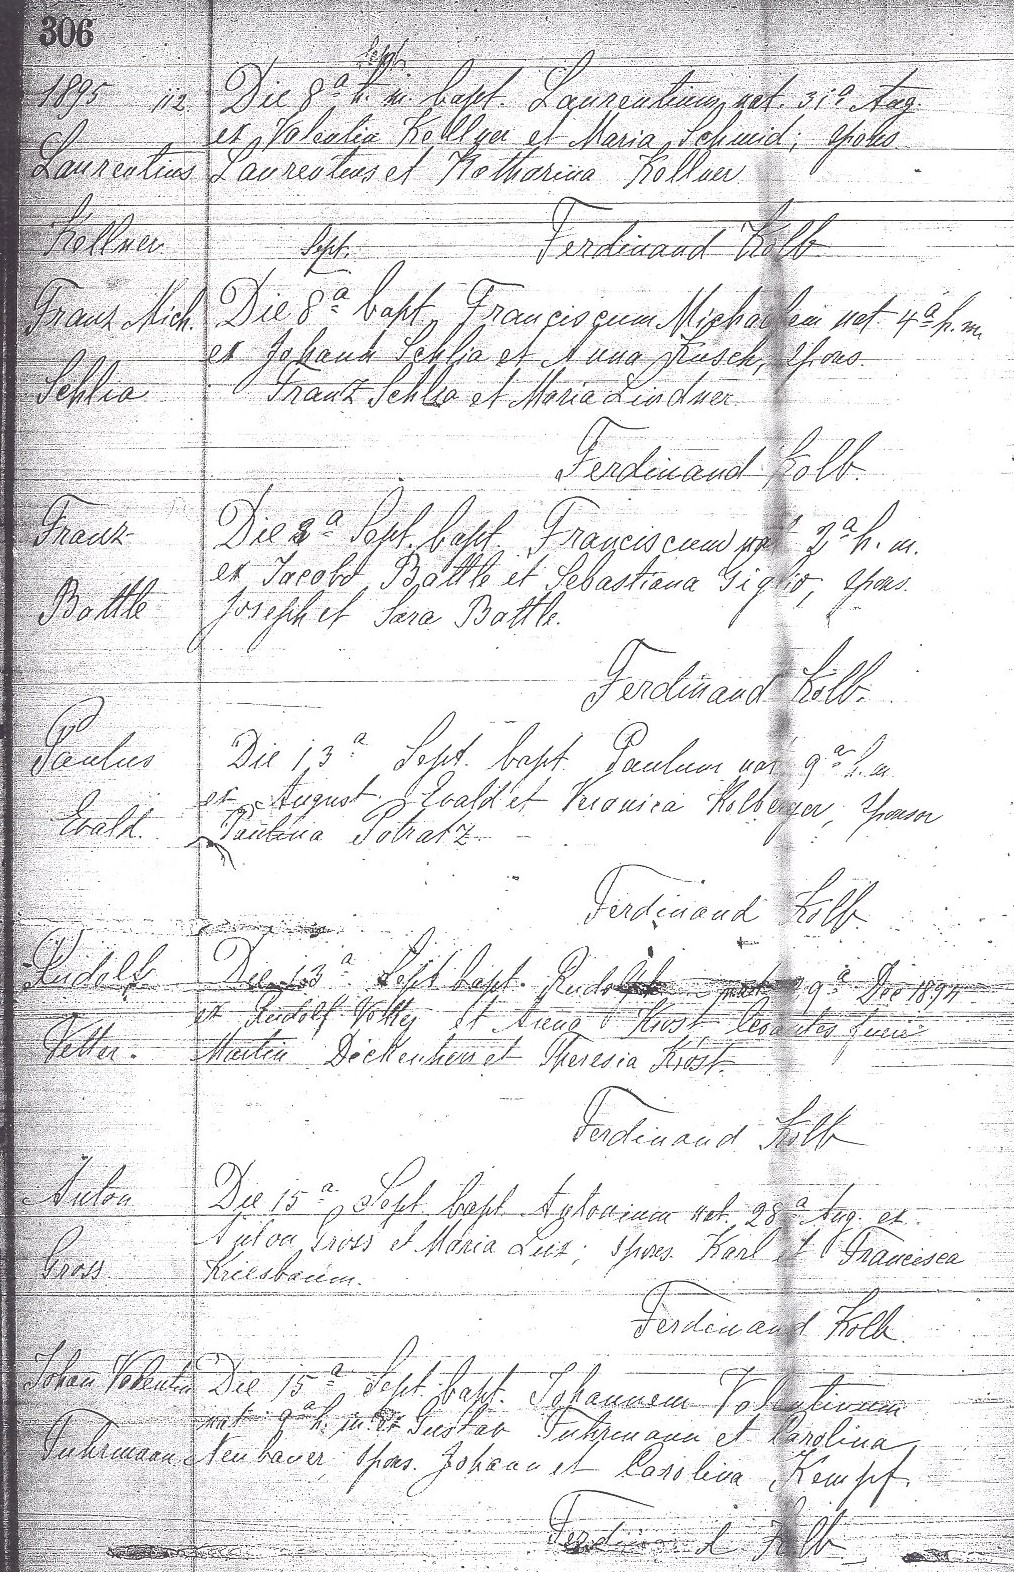 306
Sept.
1895 112. Die 8ª h. m. bapt. Laurentium nat. 31ª Aug.
ex Valentin Kellner et Maria Schmid; spons
Laurentius Laurentius et Katharina Kellner
Kellner Ferdinand Kolb
Sept.
Franz Mich. Die 8ª bapt. Franciscum Michaelem nat. 4ª h. m.
ex Johann Schlia et Anna Kusch, spons.
Schlia Franz Schlia et Maria Lindner
Ferdinand Kolb.
Franz Die 8ª Sept. bapt. Franciscum nat 2ª h. m.
ex Jacobo Battle et Sebastiana Giglio, spons.
Battle Joseph et Sara Battle.
Ferdinand Kolb.
Paulus Die 13ª Sept. bapt. Paulum nat 9ª h. m
ex August. Evald et Veronica Kolberger, sponsor
Evald. Paulina Potratz
Ferdinand Kolb
Rudolf Die 13ª Sept bapt. nat 29ª Dec 1894
ex Rudolf et Anna Krost
Vetter. Martin et Theresia Krost.
Ferdinand Kolb
Anton Die 15ª Sept. bapt Antonium nat. 28ª Aug. ex
Anton Gross et Maria Lutz; spons. Karl et Francisca
Gross Kriesbaum.
Ferdinand Kolb
Johan Valentin Die 15ª Sept. bapt. Johannem Valentinum
nat. 9ª h. m. ex Gustav Fuhrmann et Carolina
Fuhrmann Neubauer, spons. Johann et Carolina Kempf.
Ferdinand Kolb